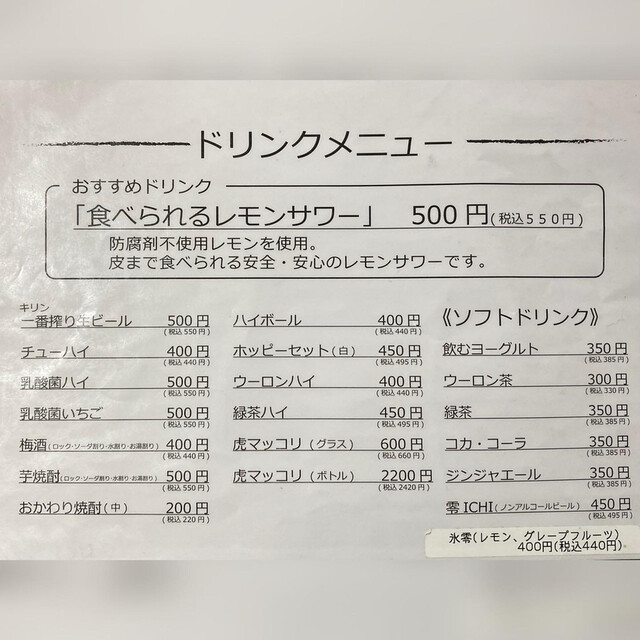 ドリンクメニュー
おすすめドリンク
「食べられるレモンサワー」 500円(税込550円)
防腐剤不使用レモンを使用。
皮まで食べられる安全・安心のレモンサワーです。
キリン
一番搾り生ビール 500円
(税込550円)
チューハイ 400円
(税込440円)
乳酸菌ハイ 500円
(税込550円)
乳酸菌いちご 500円
(税込550円)
梅酒(ロック・ソーダ割り・水割り・お湯割り) 400円
(税込440円)
芋焼酎(ロック・ソーダ割り・水割り・お湯割り) 500円
(税込550円)
おかわり焼酎(中) 200円
(税込220円)
ハイボール 400円
(税込440円)
ホッピーセット(白) 450円
(税込495円)
ウーロンハイ 400円
(税込440円)
緑茶ハイ 450円
(税込495円)
虎マッコリ(グラス) 600円
(税込660円)
虎マッコリ(ボトル) 2200円
(税込2420円)
《ソフトドリンク》
飲むヨーグルト 350円
(税込385円)
ウーロン茶 300円
(税込330円)
緑茶 350円
(税込385円)
コカ・コーラ 350円
(税込385円)
ジンジャエール 350円
(税込385円)
零ICHI(ノンアルコールビール) 450円
(税込495円)
氷零(レモン、グレープフルーツ)
400円(税込440円)